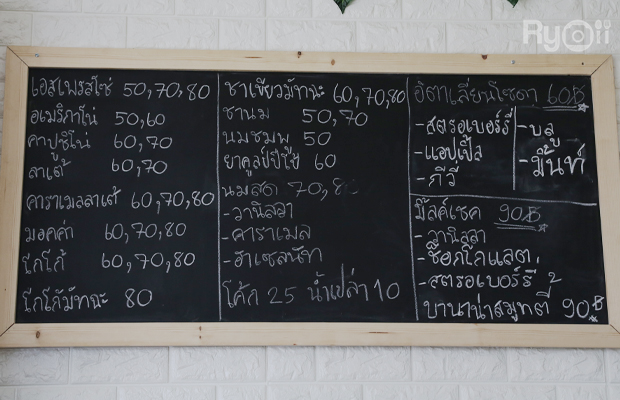 Ryoii
เอสเพรสโซ่ 50,70,80
อเมริกาโน่ 50,60
คาปูชิโน่ 60,70
ลาเต้ 60,70
คาราเมลลาเต้ 60,70,80
มอคค่า 60,70,80
โกโก้ 60,70,80
โกโก้มัทฉะ 80
ชาเขียวมัทฉะ 60,70,80
ชานม 50,70
นมชมพู 50
ยาคูลย์ปีโป้ 60
นมสด 70,80
-วานิลลา
-คาราเมล
-ฮาเซลนัท
โค้ก 25 น้ำเปล่า 10
อิตาเลี่ยนโซดา 60฿
-สตรอเบอร์รี่
-แอปเปิ้ล
-กีวี่
-บลู
-มิ้นท์
มิ้ลค์เชค 90฿
-วานิลลา
-ช็อกโกแลต
-สตรอเบอร์รี่
บานาน่าสมูทตี้ 90฿